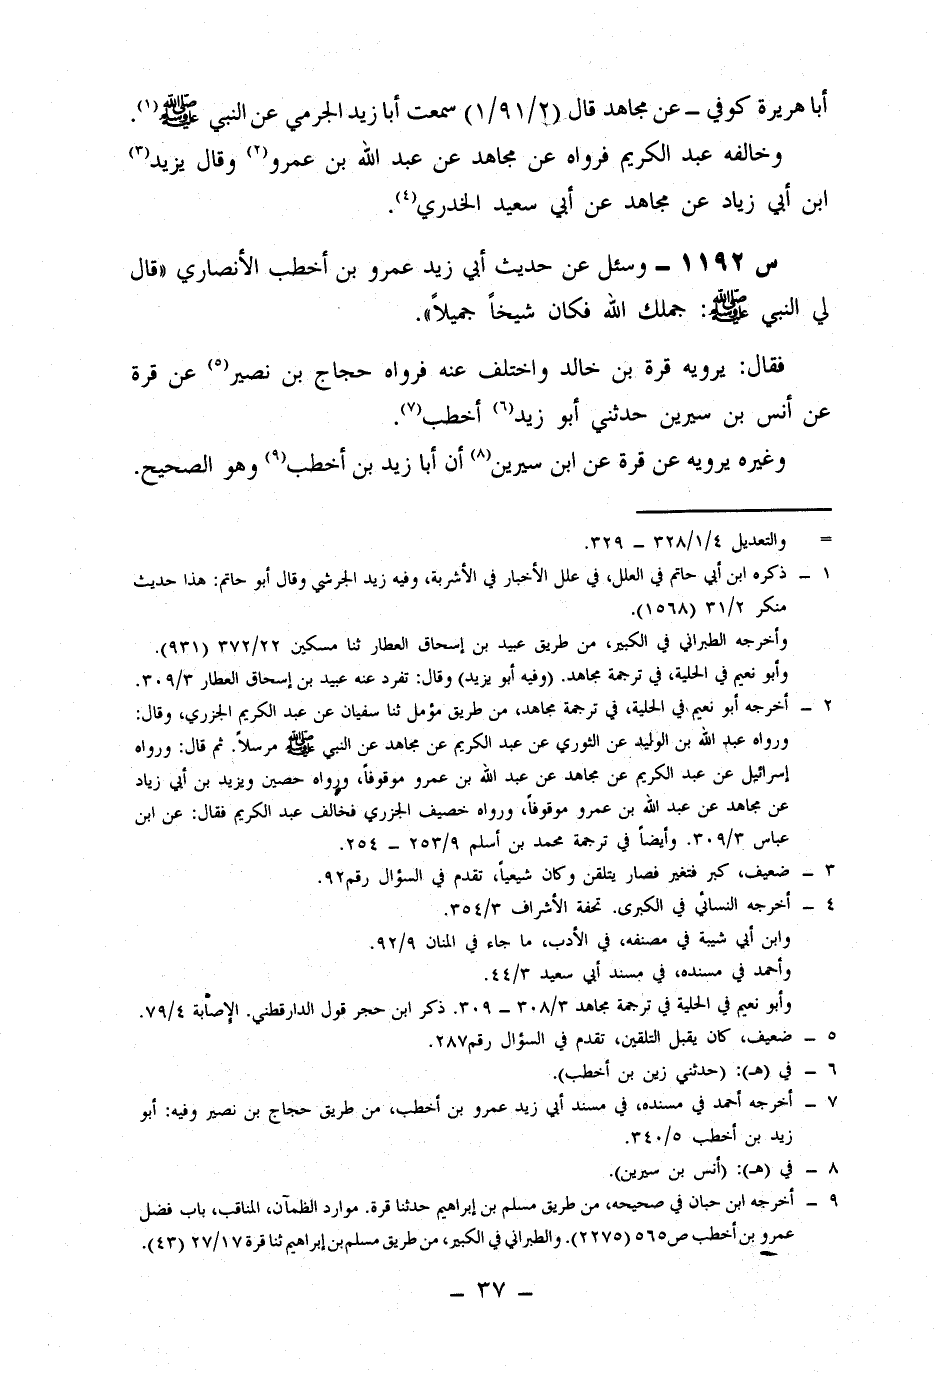 أبا هريرة كوفي ـ عن مجاهد قال (١/٩١/٢) سمعت أبا زيد الجرمي عن النبي ﷺ(١).
وخالفه عبد الكريم فرواه عن مجاهد عن عبد الله بن عمرو(٢) وقال يزيد(٣)
ابن أبي زياد عن مجاهد عن أبي سعيد الخدري(٤).
س ١١٩٢ ـ وسئل عن حديث أبي زيد عمرو بن أخطب الأنصاري «قال
لي النبي ﷺ: جملك الله فكان شيخاً جميلاً».
فقال: يرويه قرة بن خالد واختلف عنه فرواه حجاج بن نصير(٥) عن قرة
عن أنس بن سيرين حدثني أبو زيد(٦) أخطب(٧).
وغيره يرويه عن قرة عن ابن سيرين(٨) أن أبا زيد بن أخطب(٩) وهو الصحيح.
= والتعديل ٣٢٨/١/٤ ـ ٣٢٩.
١ ـ ذكره ابن أبي حاتم في العلل، في علل الأخبار في الأشربة، وفيه زيد الجرشي وقال أبو حاتم: هذا حديث
منكر ٣١/٢ (١٥٦٨).
وأخرجه الطبراني في الكبير، من طريق عبيد بن إسحاق العطار ثنا مسكين ٣٧٢/٢٢ (٩٣١).
وأبو نعيم في الحلية، في ترجمة مجاهد. (وفيه أبو يزيد) وقال: تفرد عنه عبيد بن إسحاق العطار ٣٠٩/٣.
٢ ـ أخرجه أبو نعيم في الحلية، في ترجمة مجاهد، من طريق مؤمل ثنا سفيان عن عبد الكريم الجزري، وقال:
ورواه عبد الله بن الوليد عن الثوري عن عبد الكريم عن مجاهد عن النبي ﷺ مرسلاً. ثم قال: ورواه
إسرائيل عن عبد الكريم عن مجاهد عن عبد الله بن عمرو موقوفاً، ورواه حصين ويزيد بن أبي زياد
عن مجاهد عن عبد الله بن عمرو موقوفاً، ورواه خصيف الجزري فخالف عبد الكريم فقال: عن ابن
عباس ٣٠٩/٣. وأيضاً في ترجمة محمد بن أسلم ٢٥٣/٩ ـ ٢٥٤.
٣ ـ ضعيف، كبر فتغير فصار يتلقن وكان شيعياً، تقدم في السؤال رقم٩٢.
٤ ـ أخرجه النسائي في الكبرى. تحفة الأشراف ٣٥٤/٣.
وابن أبي شيبة في مصنفه، في الأدب، ما جاء في المنان ٩٢/٩.
وأحمد في مسنده، في مسند أبي سعيد ٤٤/٣.
وأبو نعيم في الحلية في ترجمة مجاهد ٣٠٨/٣ ـ ٣٠٩. ذكر ابن حجر قول الدارقطني. الإصابة ٧٩/٤.
٥ ـ ضعيف، كان يقبل التلقين، تقدم في السؤال رقم٢٨٧.
٦ ـ في (هـ): (حدثني زين بن أخطب).
٧ ـ أخرجه أحمد في مسنده، في مسند أبي زيد عمرو بن أخطب، من طريق حجاج بن نصير وفيه: أبو
زيد بن أخطب ٣٤٠/٥.
٨ ـ في (هـ): (أنس بن سيرين).
٩ ـ أخرجه ابن حبان في صحيحه، من طريق مسلم بن إبراهيم حدثنا قرة. موارد الظمآن، المناقب، باب فضل
عمرو بن أخطب ص٥٦٥ (٢٢٧٥). والطبراني في الكبير، من طريق مسلم بن إبراهيم ثنا قرة ٢٧/١٧ (٤٣).
ـ ٣٧ ـ